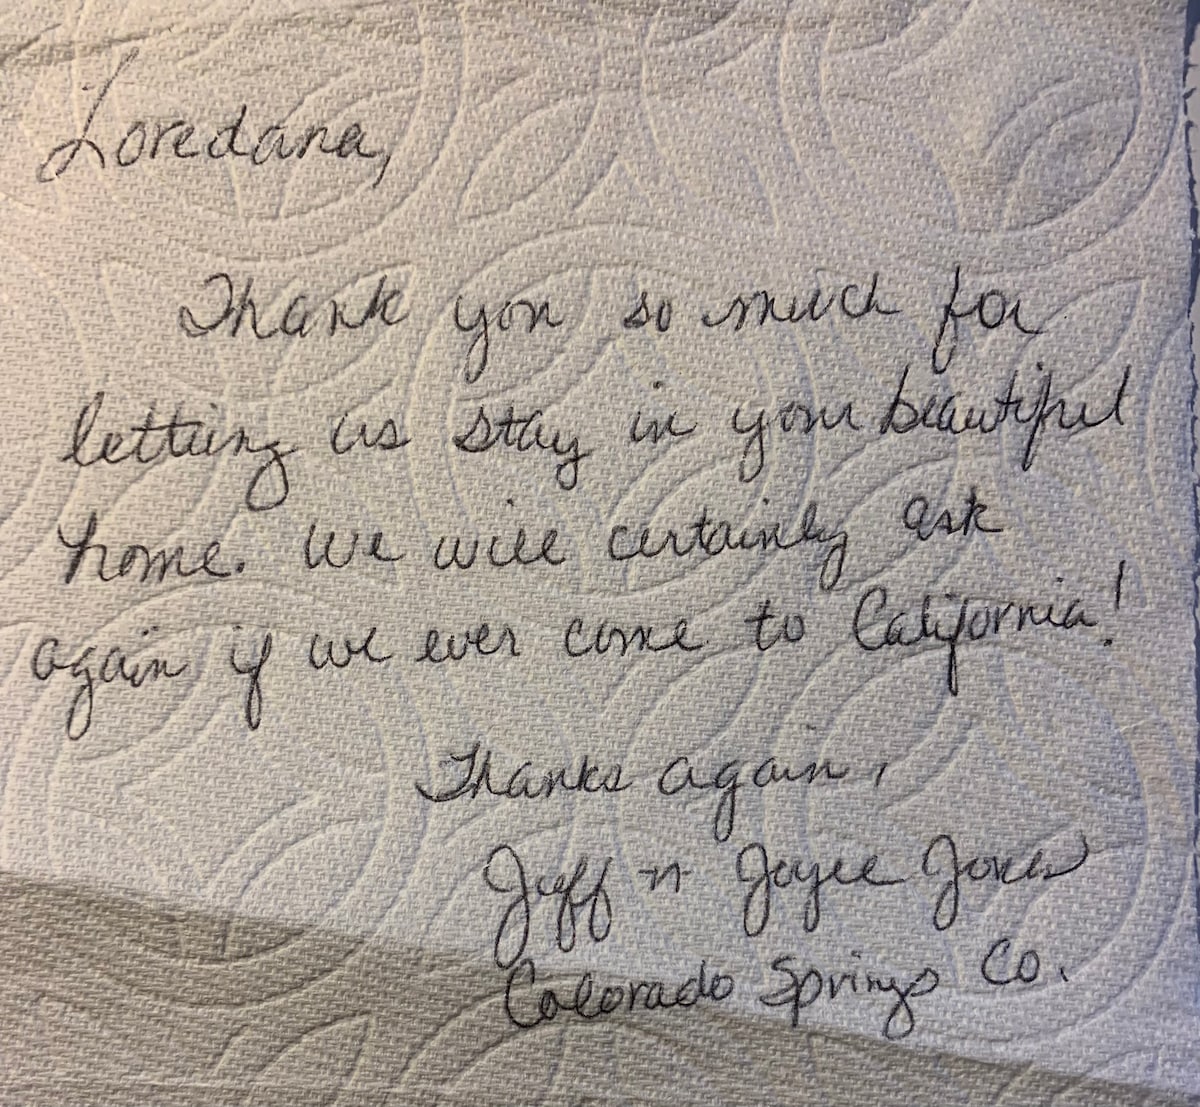 Loredana,
Thank you so much for
letting us stay in your beautiful
home. We will certainly ask
again if we ever come to California!
Thanks again,
Jeff n Joyce Jones
Colorado Springs Co.